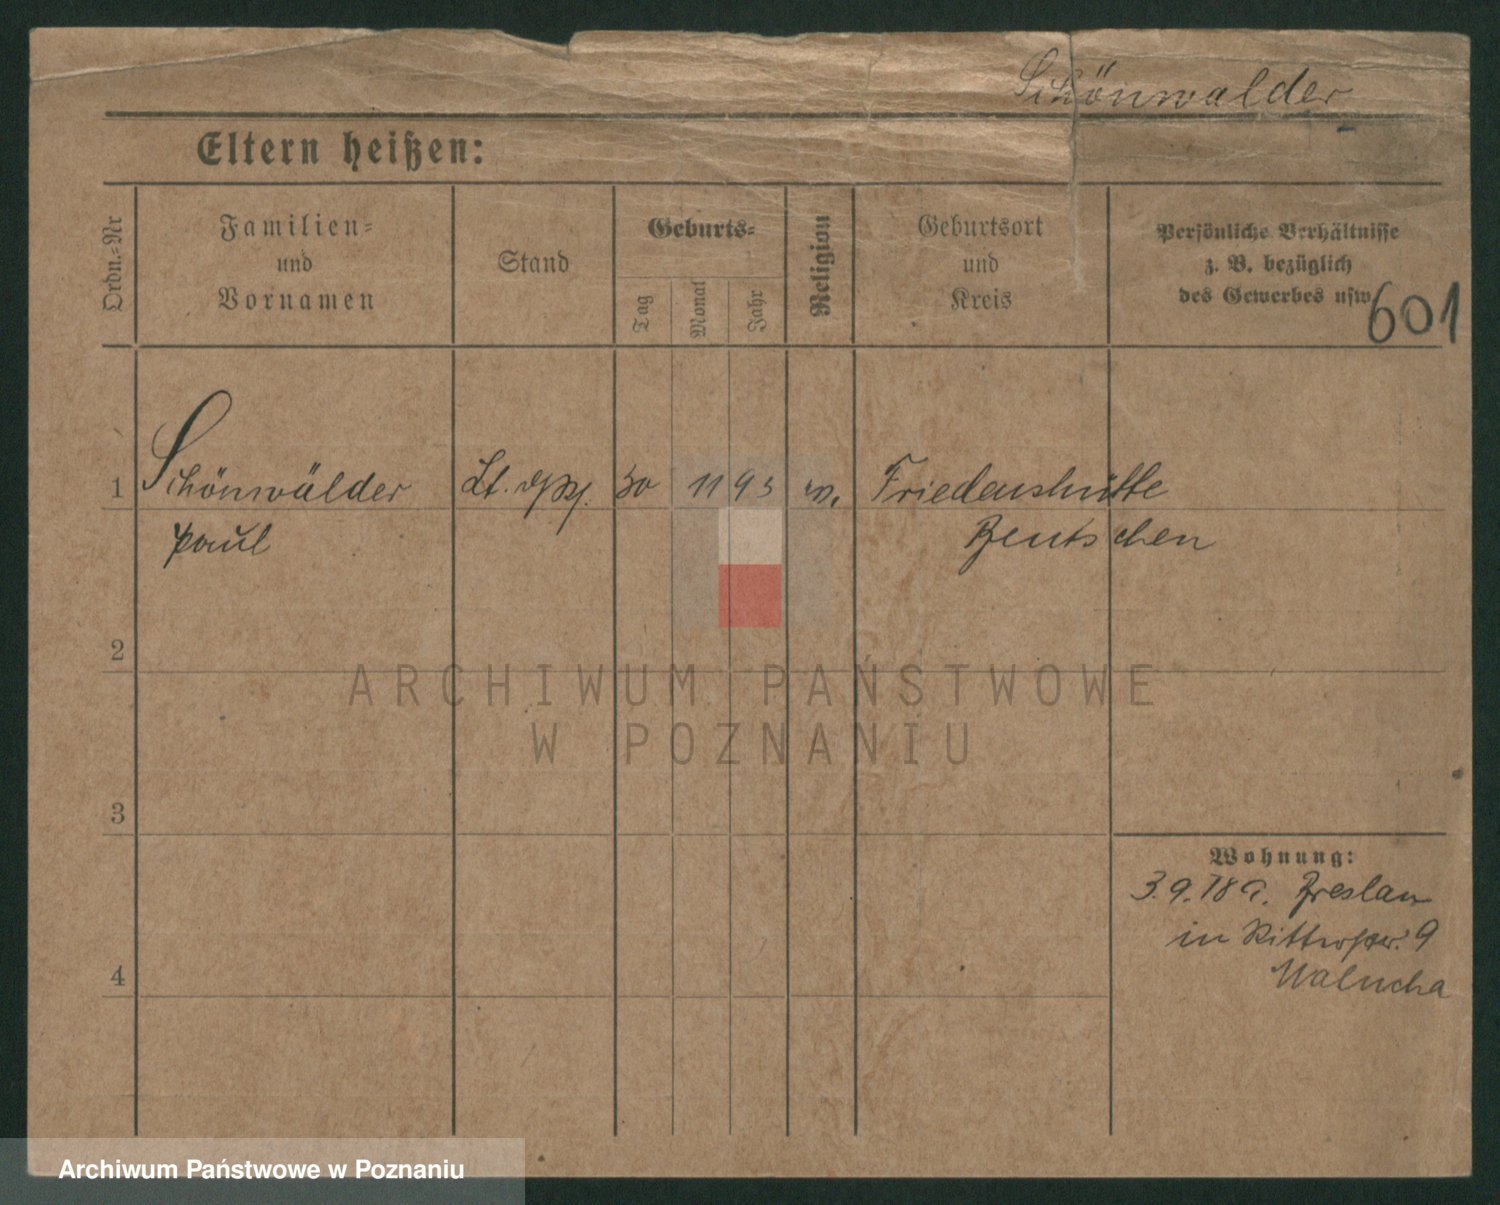 Schönwalder
Eltern heißen:
Ordn.-Nr
Familien-
und
Vornamen
Stand
Geburts-
Tag
Monat
Jahr
Religion
Geburtsort
und
Kreis
Persönliche Verhältnisse
z. B. bezüglich
des Gewerbes usw.
601
1 Schönwälder Lt. 30 11 93 Friedenshütte
Paul Beutschen
2
ARCHIWUM PAŃSTWOWE
W POZNANIU
3
Wohnung:
3.9.18 Breslau
in 9
Malucha
4
Archiwum Państwowe w Poznaniu